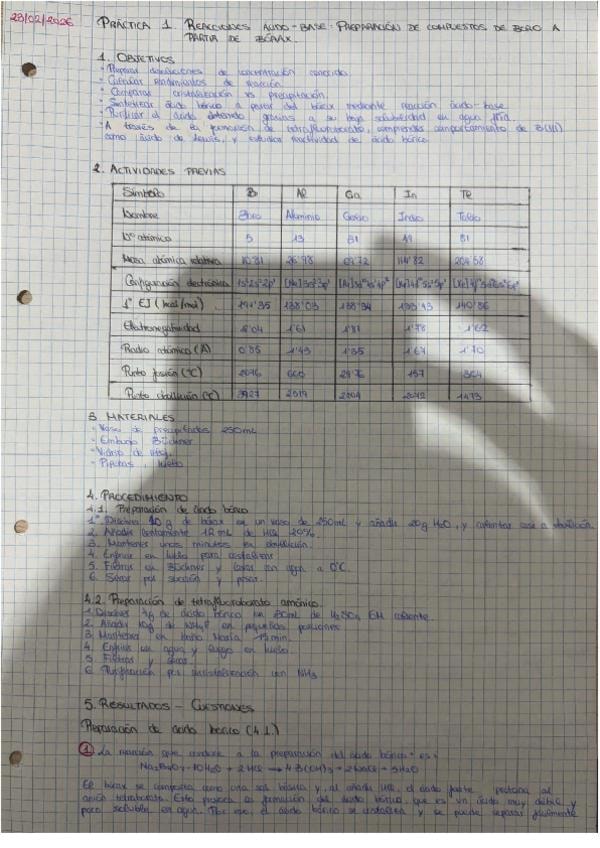 23/02/2026
PRÁCTICA 1. REACCIONES ÁCIDO-BASE: PREPARACIÓN DE COMPUESTOS DE BORO A
PARTIR DE BÓRAX.
1. OBJETIVOS
· Preparar disoluciones de concentración conocida.
· Calcular rendimientos de reacción.
· Comparar cristalización vs precipitación.
· Sintetizar ácido bórico a partir del bórax mediante reacción ácido-base.
· Purificar el ácido obtenido gracias a su baja solubilidad en agua fría.
· A través de la formación de tetrafluoroborato, comprender comportamiento de B(III)
como ácido de Lewis, y estudiar reactividad del ácido bórico.
2. ACTIVIDADES PREVIAS
Símbolo B Al Ga In Tl
Nombre Boro Aluminio Galio Indio Talio
Nº atómico 5 13 31 49 81
Masa atómica relativa 10'81 26'98 69'72 114'82 204'38
Configuración electrónica
1º EI (kcal/mol) 138'03
Electronegatividad 2'04 1'61 1'81 1'78 1'62
Radio atómico (Å) 0'85 1'43 1'35 1'67 1'70
Punto fusión (ºC) 2076 660 157 304
Punto ebullición (ºC) 3927 2072 1473
3. MATERIALES
· Vaso de precipitados 250mL
· Embudo Büchner
· Vidrio de reloj
· Pipetas, hielo
4. PROCEDIMIENTO
4.1. Preparación de ácido bórico
1. Disolver 10 g de bórax en un vaso de 250mL y añadir 20g H₂O, y calentar casi a ebullición.
2. Añadir lentamente 12mL de HCl 20%.
3. Mantener unos minutos en ebullición.
4. Enfriar en hielo para cristalizar.
5. Filtrar en Büchner y lavar con agua a 0ºC.
6. Secar por succión y pesar.
4.2. Preparación de tetrafluoroborato amónico.
1. Disolver g de ácido bórico en mL de H₂SO₄ 6M caliente.
2. Añadir g de NH₄F en pequeñas porciones
3. Mantener en baño María 15 min.
4. Enfriar en agua y luego en hielo.
5. Filtrar y secar.
6. Purificación por recristalización con NH₃
5. RESULTADOS - CUESTIONES
Preparación de ácido bórico (4.1.)
1 La reacción que conduce a la preparación del ácido bórico es:
Na₂B₄O₇·10H₂O + 2HCl → 4B(OH)₃ + 2NaCl + 5H₂O
El bórax se comporta como una sal básica y, al añadir HCl, el ácido fuerte protona al
anión tetraborato. Esto provoca la formación del ácido bórico, que es un ácido muy débil y
poco soluble en agua. Por eso, el ácido bórico se cristaliza y se puede separar fácilmente